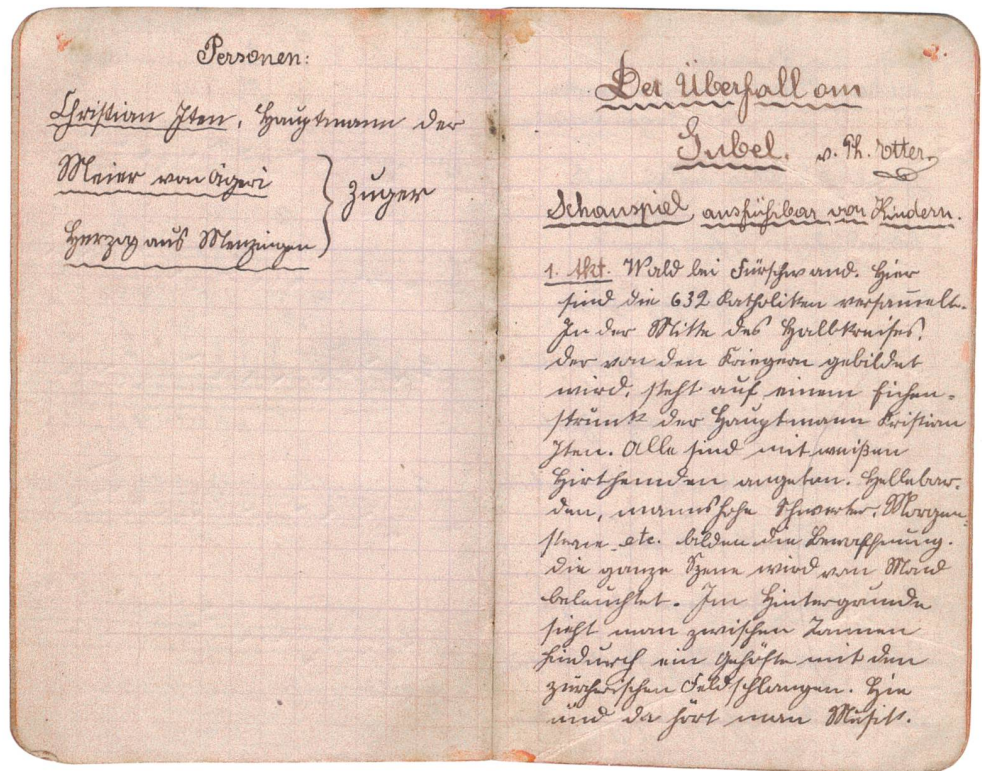 Personen:
Christian Iten, Hauptmann der
Meier von Ägeri
Herzog aus Menzingen
Zuger
Der Überfall am
Gubel. v. Ph. Etter.
Schauspiel ausführbar von Kindern.
1. Akt. Wald bei Fürschwand. Hier
sind die 632 Katholiken versam̄elt.
In der Mitte des Halbkreises,
der von den Kriegern gebildet
wird, steht auf einem Eichen-
strunk der Hauptmann Kristian
Iten. Alle sind mit weißen
Hirthemden angetan. Hellebar-
den, mannshohe Schwerter, Morgen-
sterne etc. bilden die Bewaffnung.
Die ganze Szene wird von Mond
beleuchtet. Im Hintergrunde
sieht man zwischen Tannen
hindurch ein Gehöfte mit den
zürcherischen Feldschlangen. Hie
und da hört man Musik.